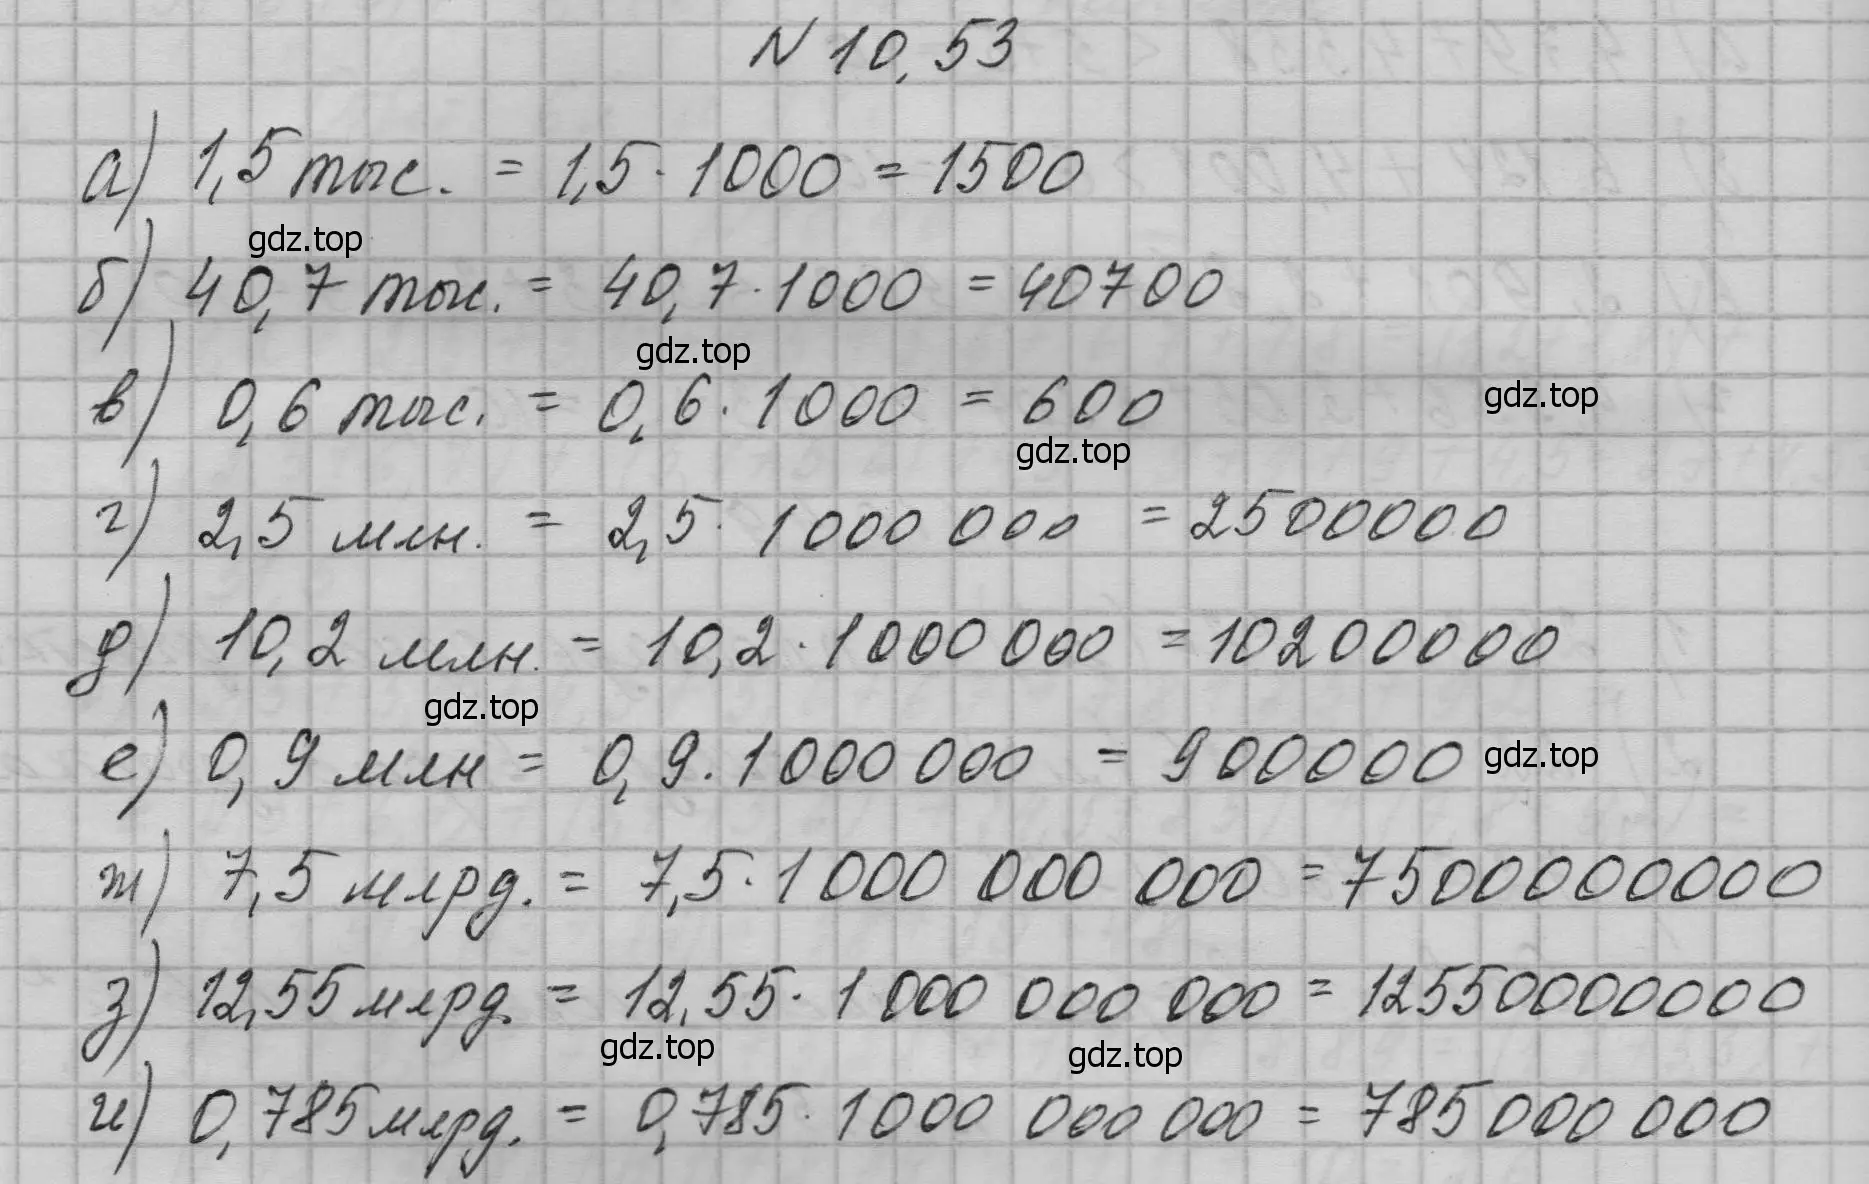 N 10,53
а) 1,5 тыс. = 1,5 · 1000 = 1500
gdz.top
б) 40,7 тыс. = 40,7 · 1000 = 40700
gdz.top
в) 0,6 тыс. = 0,6 · 1000 = 600
gdz.top
gdz.top
г) 2,5 млн. = 2,5 · 1000 000 = 2500000
д) 10,2 млн. = 10,2 · 1000 000 = 10200000
gdz.top
е) 0,9 млн = 0,9 · 1000 000 = 900000
gdz.top
ж) 7,5 млрд. = 7,5 · 1000 000 000 = 7500000000
з) 12,55 млрд. = 12,55 · 1 000 000 000 = 12550000000
gdz.top
gdz.top
и) 0,785 млрд. = 0,785 · 1000 000 000 = 785000 000